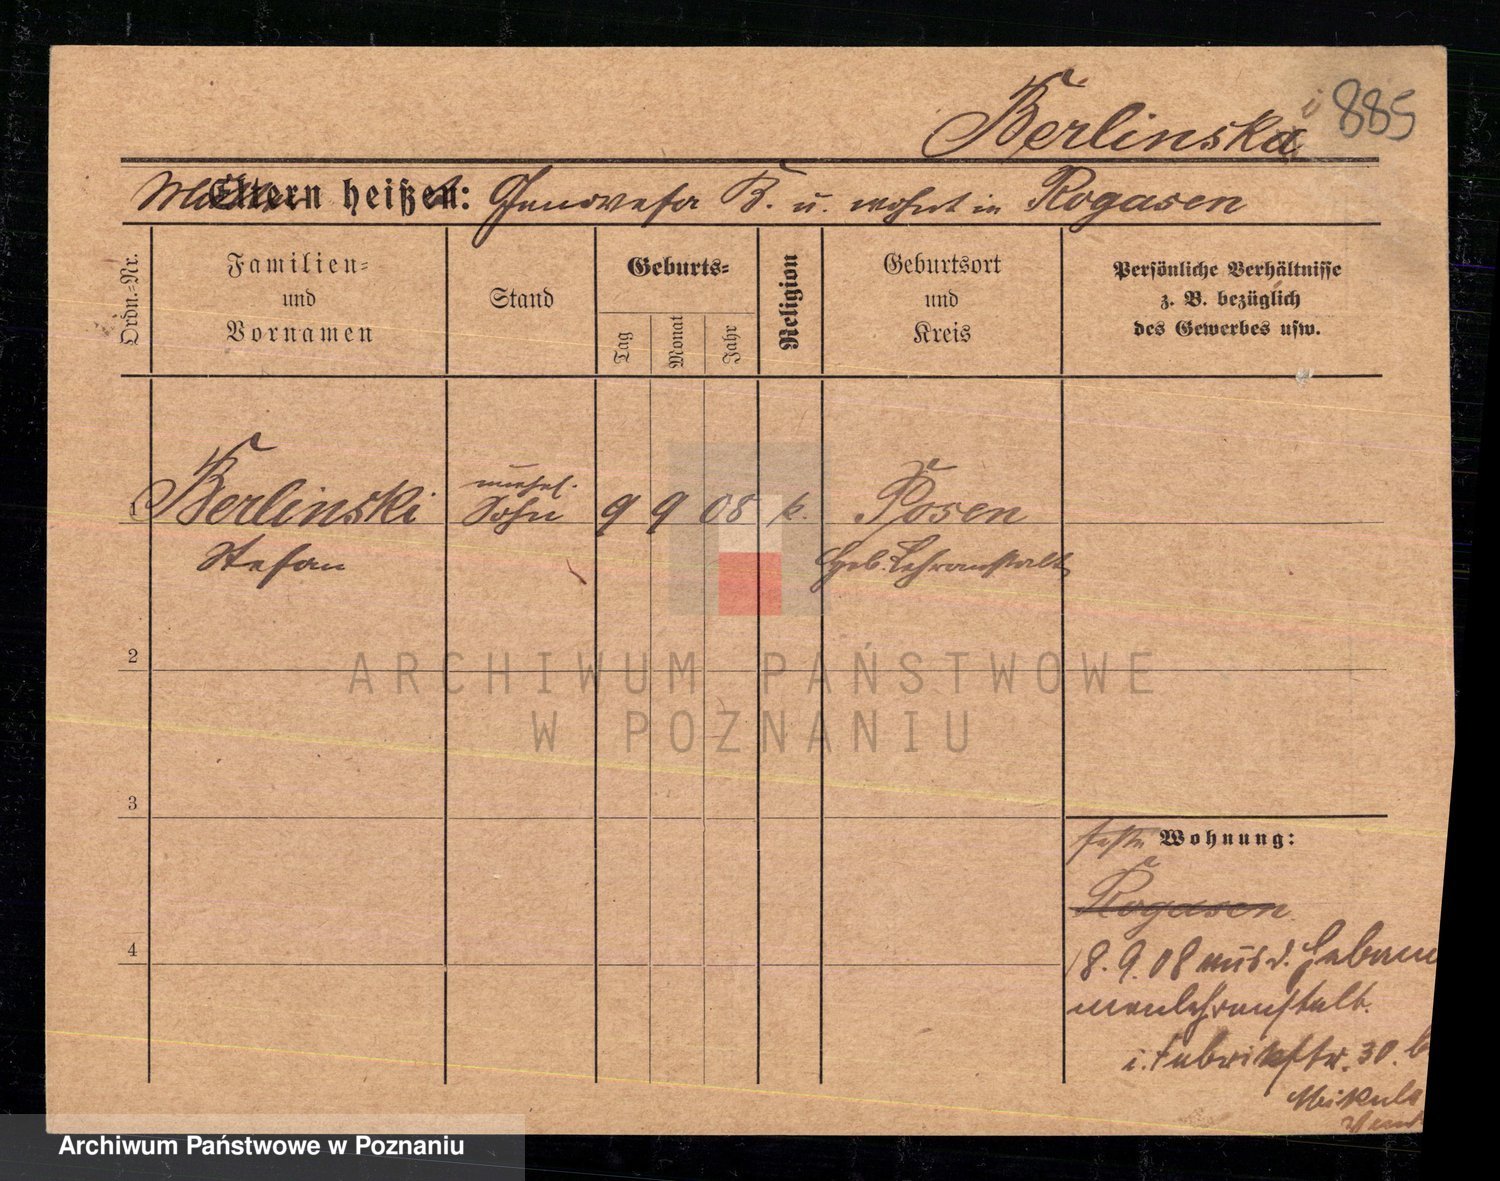 Berlinska i 885
Mutter Eltern heißen: Genovefa B. u. wohnt in Rogasen
Ordn.-Nr.
Familien-
und
Vornamen
Stand
Geburts-
Tag
Monat
Jahr
Religion
Geburtsort
und
Kreis
Persönliche Verhältnisse
z. B. bezüglich
des Gewerbes usw.
unehel.
1 Berlinski Sohn 9 9 08 k. Posen
Stefan Heb. Lehranstalt
2
3
4
feste Wohnung:
Rogasen
18.9.08 aus d. Hebam
menlehranstalt.
i. Fabrikstr. 30. b
Mikula
ARCHIWUM PAŃSTWOWE
W POZNANIU
Archiwum Państwowe w Poznaniu